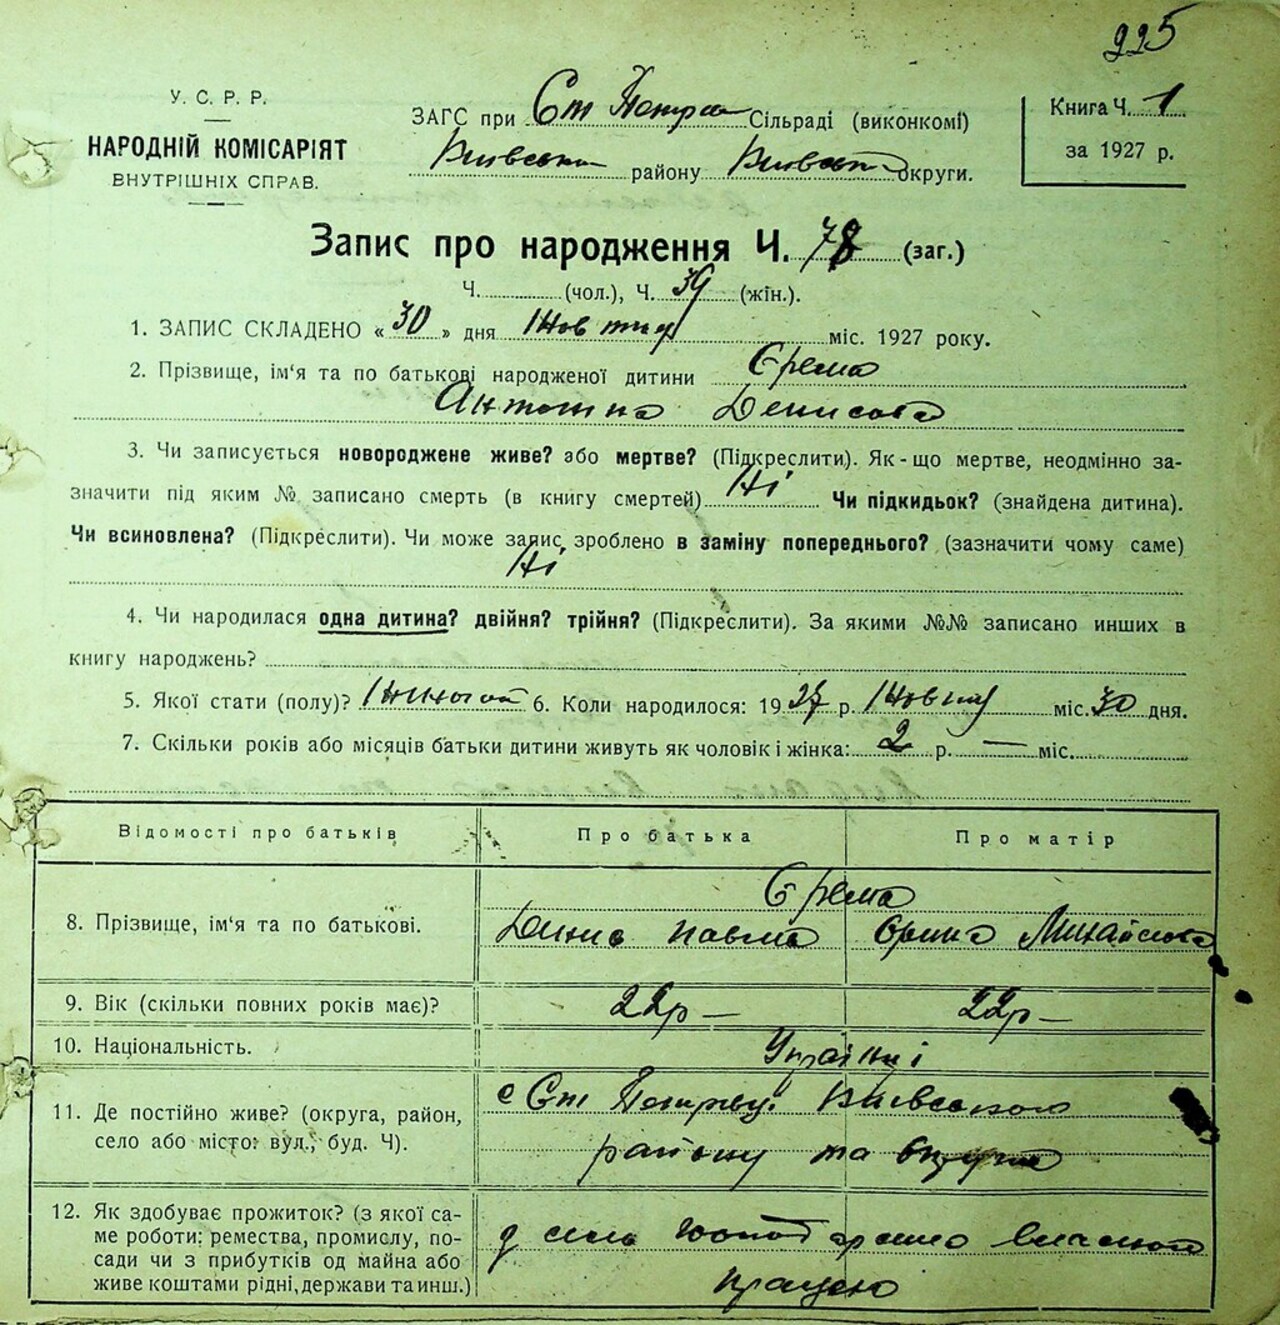 225
У. С. Р. Р.
НАРОДНІЙ КОМІСАРІЯТ
ВНУТРІШНІХ СПРАВ.
ЗАГС при Ст Петров Сільраді (виконкомі)
Київського району Київської округи.
Книга Ч. 1
за 1927 р.
Запис про народження Ч. 78 (заг.)
Ч. (чол.), Ч. 39 (жін.).
1. ЗАПИС СКЛАДЕНО «30» дня Жовтня міс. 1927 року.
2. Прізвище, ім'я та по батькові народженої дитини Єрема
Антонина Денисова
3. Чи записується новороджене живе? або мертве? (Підкреслити). Як-що мертве, неодмінно за-
значити під яким № записано смерть (в книгу смертей) Ні Чи підкидьок? (знайдена дитина).
Чи всиновлена? (Підкреслити). Чи може запис зроблено в заміну попереднього? (зазначити чому саме)
Ні
4. Чи народилася одна дитина? двійня? трійня? (Підкреслити). За якими №№ записано инших в
книгу народжень?
5. Якої стати (полу)? Жиночої 6. Коли народилося: 1927 р. Жовтня міс. 30 дня.
7. Скільки років або місяців батьки дитини живуть як чоловік і жінка: 2 р. — міс.
Відомості про батьків Про батька Про матір
Єрема
8. Прізвище, ім'я та по батькові. Денис Павлов Орина Михайлова
9. Вік (скільки повних років має)? 22р — 22р —
10. Національність. Українці
11. Де постійно живе? (округа, район,
село або місто: вул., буд. Ч).
с Ст Петрівці Київського
району та округи
12. Як здобуває прожиток? (з якої са-
ме роботи: ремества, промислу, по-
сади чи з прибутків од майна або
живе коштами рідні, держави та инш.)
сіль господарство власною
працею